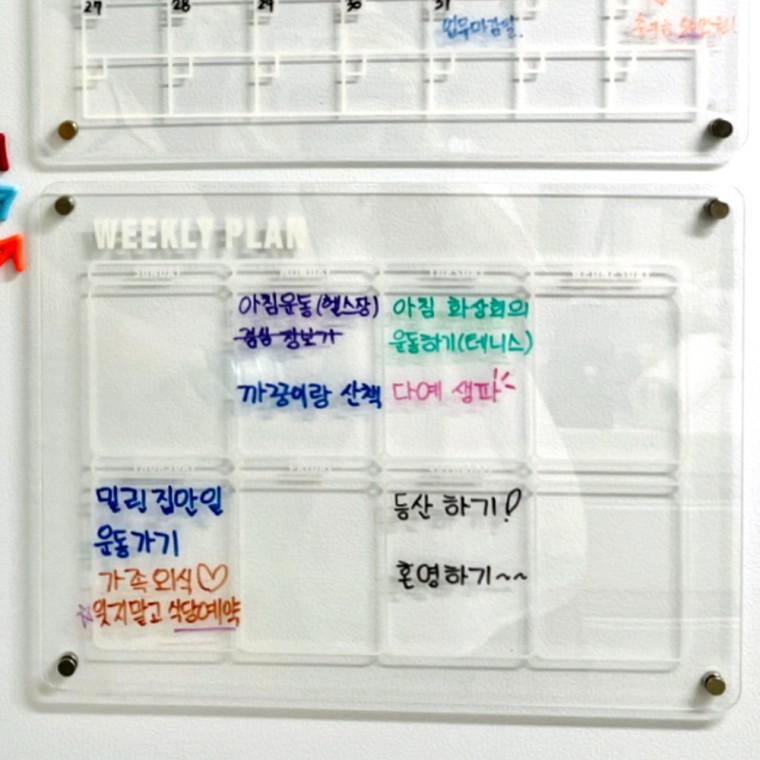 27 28 29 30 31
업무마감일.
WEEKLY PLAN
SUNDAY MONDAY TUESDAY WEDNESDAY
아침운동(헬스장)
점심 장보기
까꿍이랑 산책
아침 화상회의
운동하기(테니스)
다예 생파
THURSDAY FRIDAY SATURDAY
밀린 집안일
운동가기
가족외식♡
☆잊지말고 식당예약
등산 하기!
혼영하기~~